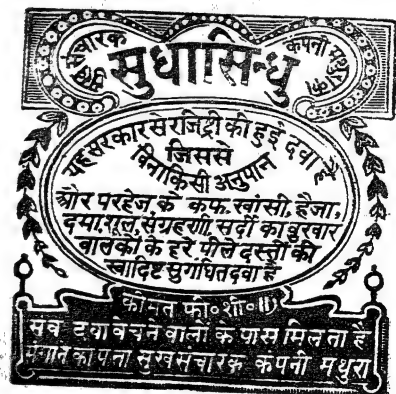 सुखसंचारक
सुधासिन्धु
कंपनी मथुरा का
यह सरकार से रजिट्री की हुई दवा है
जिससे
बिना किसी अनुपान
और परहेज के कफ, खांसी, हैजा,
दमा, शूल, संग्रहणी, सर्दी का बुखार
बालकों के हरे पीले दस्तों की
स्वादिष्ट सुगंधित दवा है
कीमत फी॰ शी॰ ॥)
सब दवा बेचने वालों के पास मिलता है
मंगाने का पता सुखसंचारक कंपनी मथुरा